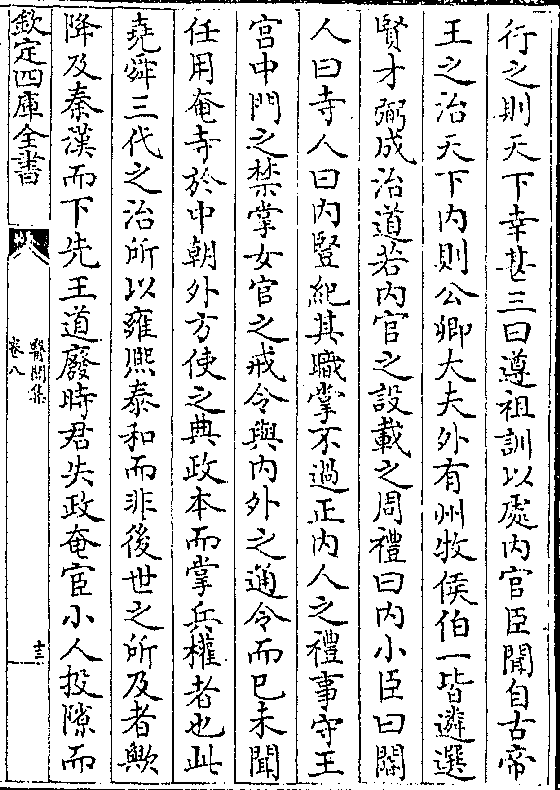 行之則天下幸甚三曰遵祖訓以處内官臣聞自古帝
王之治天下内則公卿大夫外有州牧侯伯一皆遴選
賢才弼成治道若内官之設載之周禮曰内小臣曰閽
人曰寺人曰内豎紀其職掌不過正内人之禮事守王
宫中門之禁掌女官之戒令與内外之通令而已未聞
任用奄寺於中朝外方使之典政本而掌兵權者也此
堯舜三代之治所以雍熙泰和而非後世之所及者歟
降及秦漢而下先王道廢時君失政奄宦小人投隙而
欽定四庫全書
醫閭集
卷八
十三